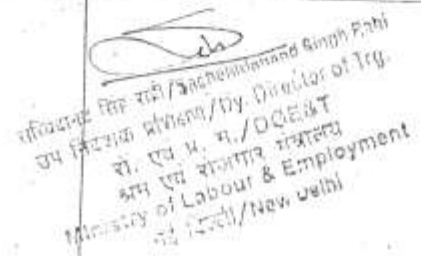 सच्चिदानन्द सिंह राही/Sachchidanand Singh Rahi
उप निदेशक प्रशिक्षण/Dy. Director of Trg.
रो. एवं प्र. म./DGE&T
श्रम एवं रोजगार मंत्रालय
Ministry of Labour & Employment
नई दिल्ली/New Delhi